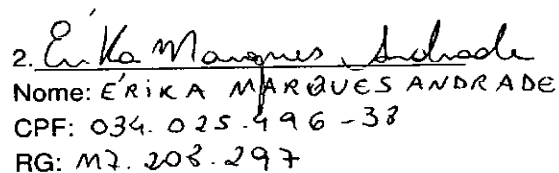 2. Érika Marques Andrade
Nome: ÉRIKA MARQUES ANDRADE
CPF: 034.025.496-38
RG: M7.208.297